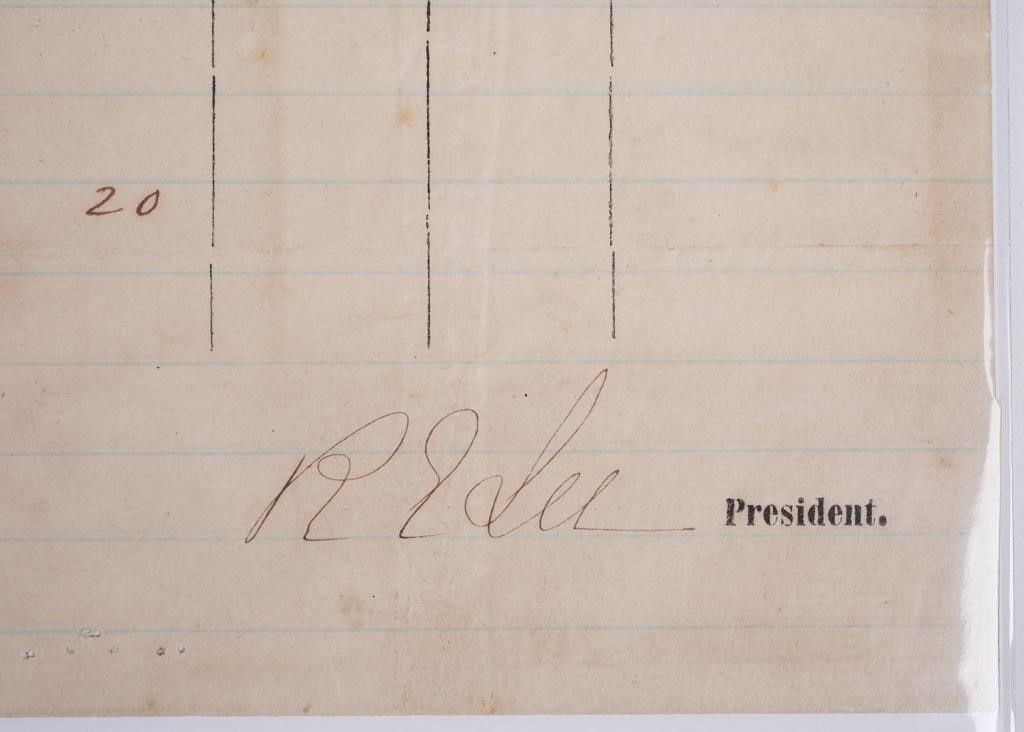 20
R E Lee President.